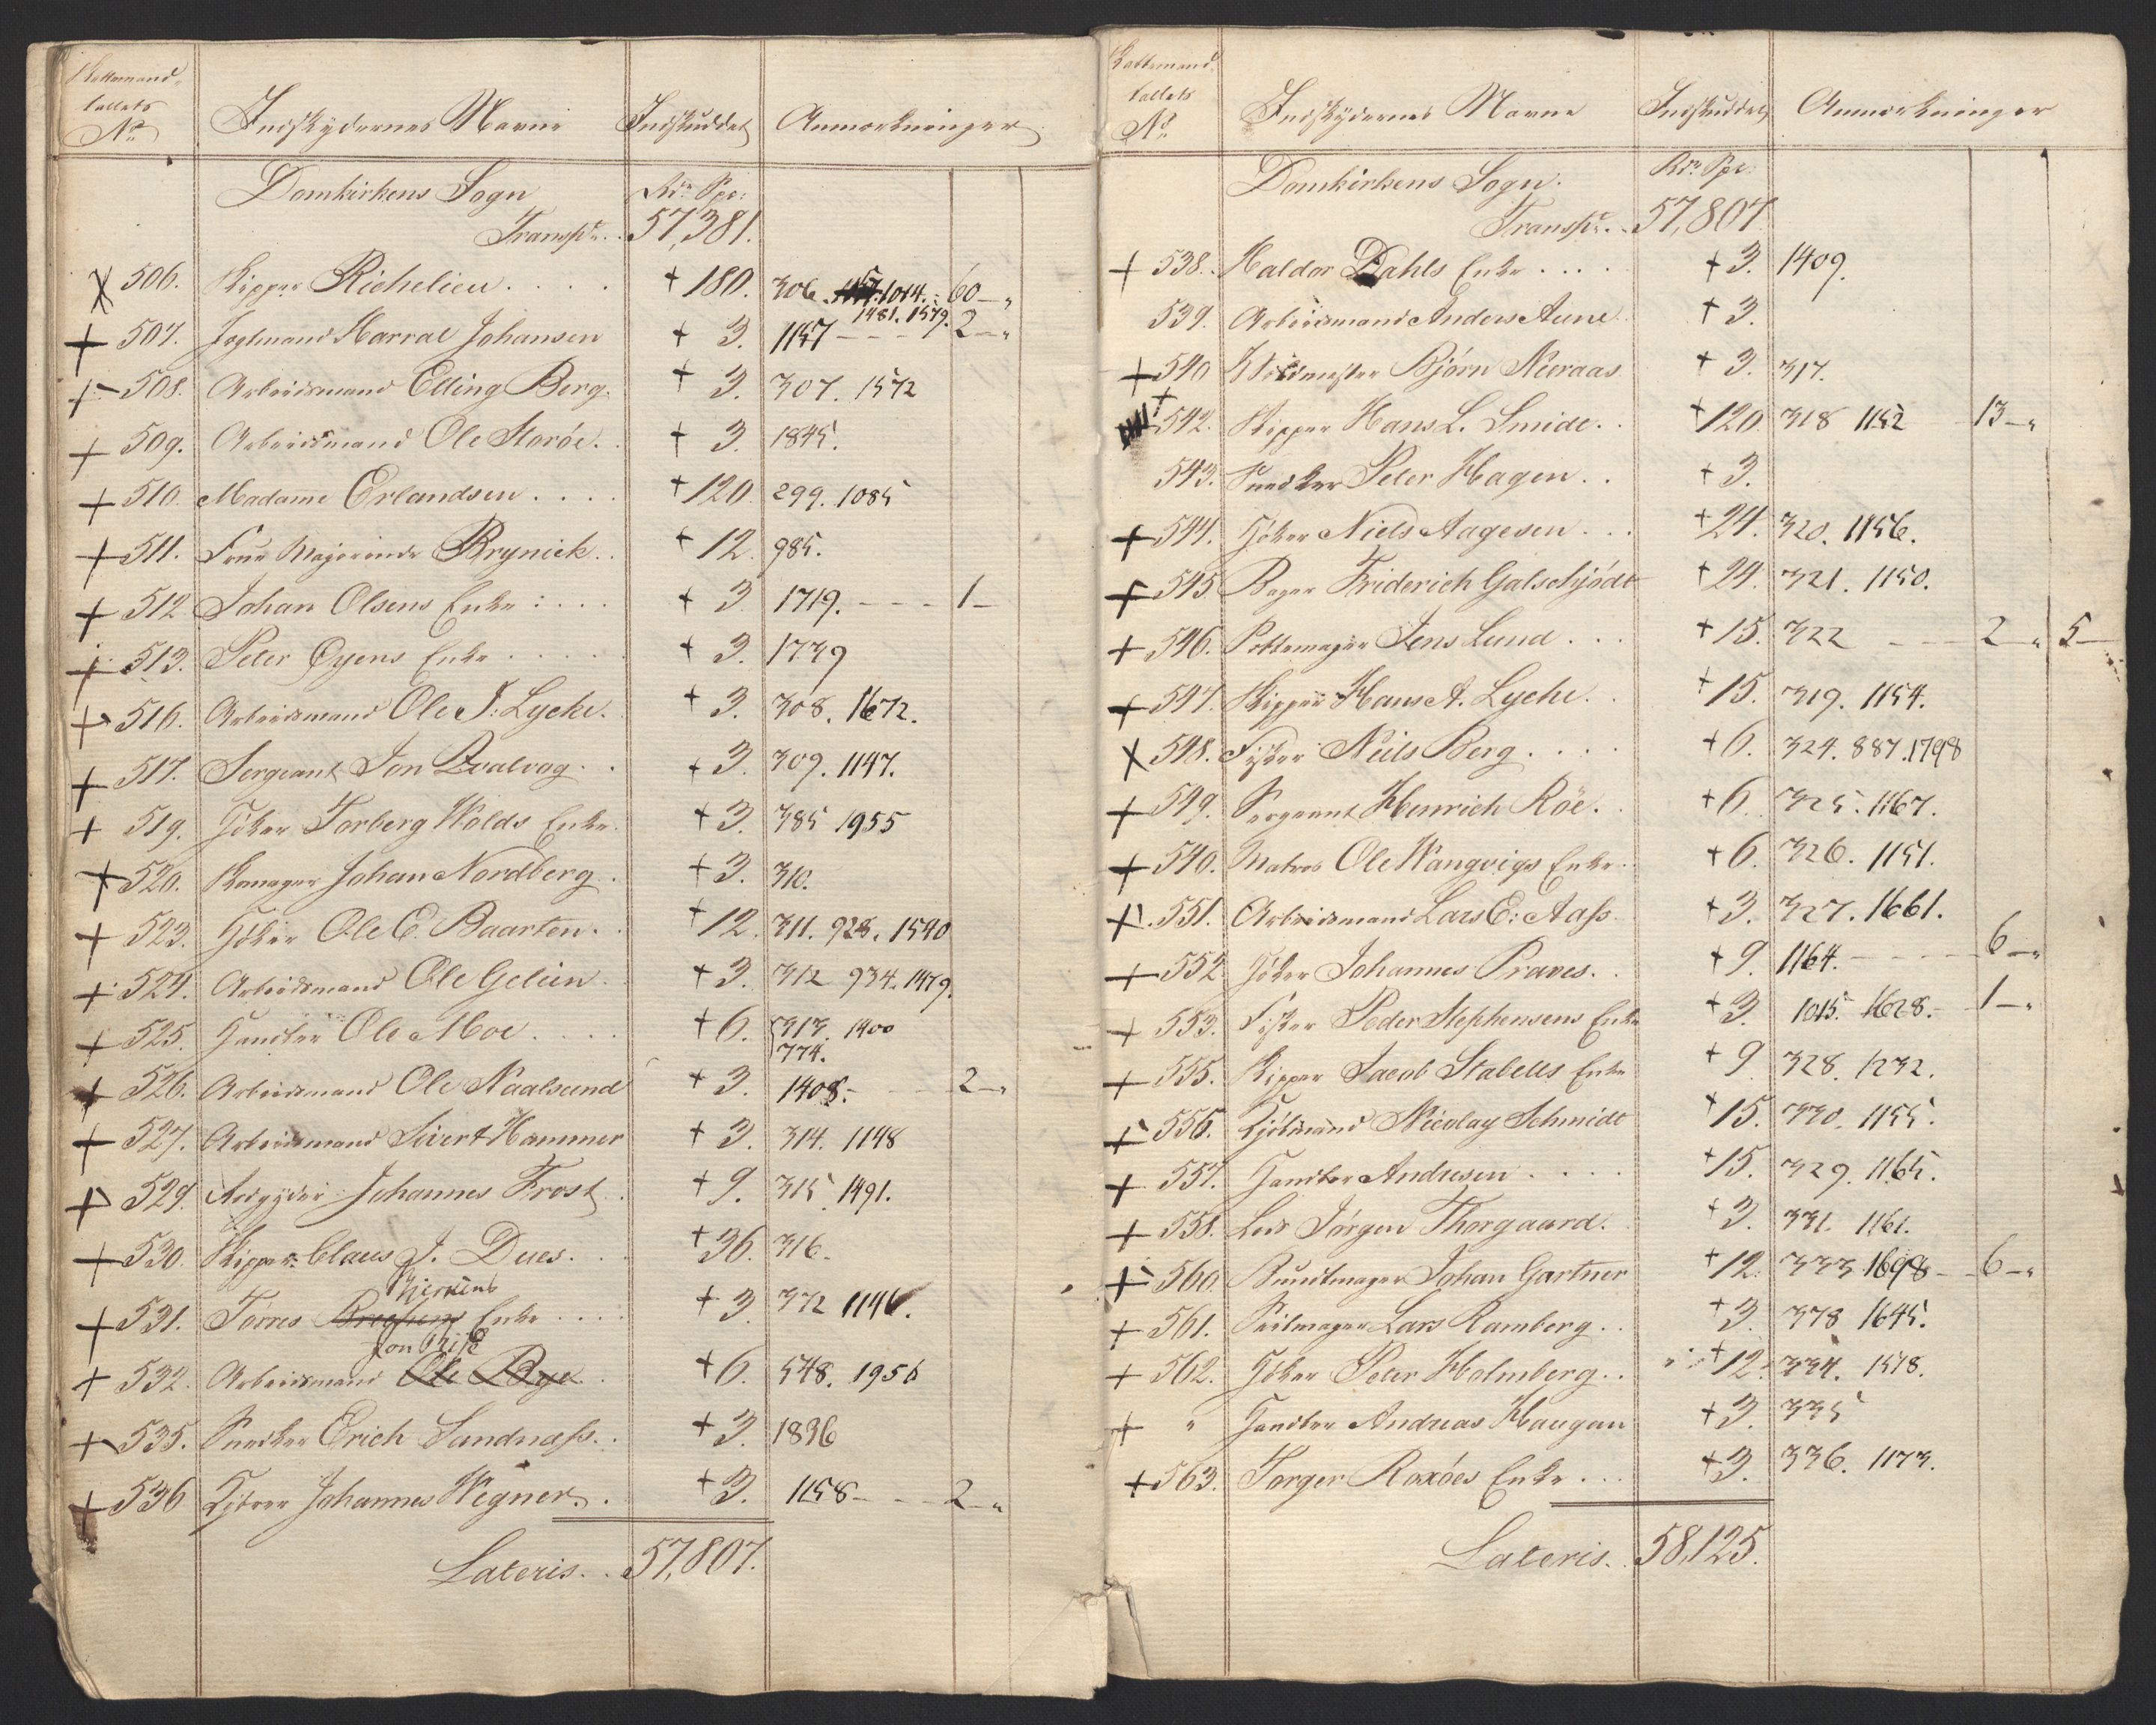 Skattemand-
tallets
No
Indskydernes Navne
Indskuddet
Anmærkninger
Domkirkens Sogn
Rdr Spe:
Transpt. . 57,381.
506. Skipper Richelieu . . . . + 180. 306. 1014. 60 - "
1481. 1579.
507. Jægtmand Harral Johansen + 3. 1157 - - - 2 - "
508. Arbeidsmand Elling Berg. + 3. 307. 1572
509. Arbeidsmand Ole Storøe. . + 3. 1845.
510. Madame Erlandsen . . . . + 120. 299. 1085
511. Frue Majorinde Brynick . . + 12. 985.
512 Johan Olsens Enke : . . . + 3. 1719. - - - 1 -
513. Peter Øyens Enke . . . . . + 3. 1739
516. Arbeidsmand Ole J: Lyche. + 3. 308. 1672.
517. Sergeant Jon Qvalvog . . + 3. 309. 1147.
519. Høker Torberg Wolds Enke. + 3. 385 1955
520. Skomager Johan Nordberg . + 3. 310.
523. Høker Ole E. Baarten . . + 12. 311. 928. 1540
524. Arbeidsmand Ole Gelein . + 3. 312 934. 1479.
525. Handler Ole Moe . . . . + 6. 313. 1400
774.
526. Arbeidsmand Ole Naalsund + 3. 1408. - - - 2 - "
527. Arbeidsmand Sivert Hammer + 3. 314. 1148
529. Johannes Frost . + 9. 315. 1491.
530. Skipper Claus J. Dues. . . + 36. 316.
531. Tørres Enke . . . . + 3. 372 1146.
532. Arbeidsmand Ole Bye . + 6. 548. 1956
535. Snedker Erich Sundnass. . + 3. 1836
536 Johannes Wegner. . + 3. 1158 - - - 2 - "
Lateris. . 57,807.
Skattemand-
tallets
No
Indskydernes Navne
Indskuddet
Anmærkninger
Domkirkens Sogn.
Rdr Spe:
Transpt. . . 57,807.
538. . Haldor Dahls Enke . . . . + 3. 1409.
539. Arbeidsmand Anders Aune . + 3.
540 Bjørn Nieraas + 3. 317.
542. Skipper Hans L. Smide. . + 120. 318 1152 - 13 - "
543. Snedker Peter Hagen . . + 3.
544. Høker Niels Aagesen . . . + 24. 320. 1156.
545 Bager Friderich Galschjødt + 24. 321. 1150.
546. Pottemager Jens Lund . . . + 15. 322 - - - 2 - " 5 -
547. Skipper Hans A. Lyche. . + 15. 319. 1154.
548. Fisker Niels Berg . . . . + 6. 324. 887. 1798
549. Sergeant Henrich Röe. . + 6. 325. 1167.
540. Matros Ole Wangvigs Enke . + 6. 326. 1151.
551. Arbeidsmand Lars E: Aass. + 3. 327. 1661.
552 Høker Johannes Praves. . + 9. 1164. - - - - 6 - "
553. Fisker Peder Stephensens Enke + 3. 1015. 1628. - 1 - "
555. Skipper Jacob Stabells Enke + 9 328. 1232.
556. Nicolay Schmidt + 15. 330. 1155.
557. Handler Andresen . . . . + 15. 329. 1165.
558. Jørgen Thorgaard. . + 3. 331. 1161.
560 Bundtmager Johan Gartner + 12. 333. 1698 - - 6 - "
561. Seilmager Lars Ramberg . . + 3. 378 1645.
562. Høker Peter Holmberg. . + 12. 334. 1578.
" Handler Andreas Haugan + 3. 335
563. Torger Roxöes Enke . . . + 3. 336. 1173.
Lateris. . 58,125.